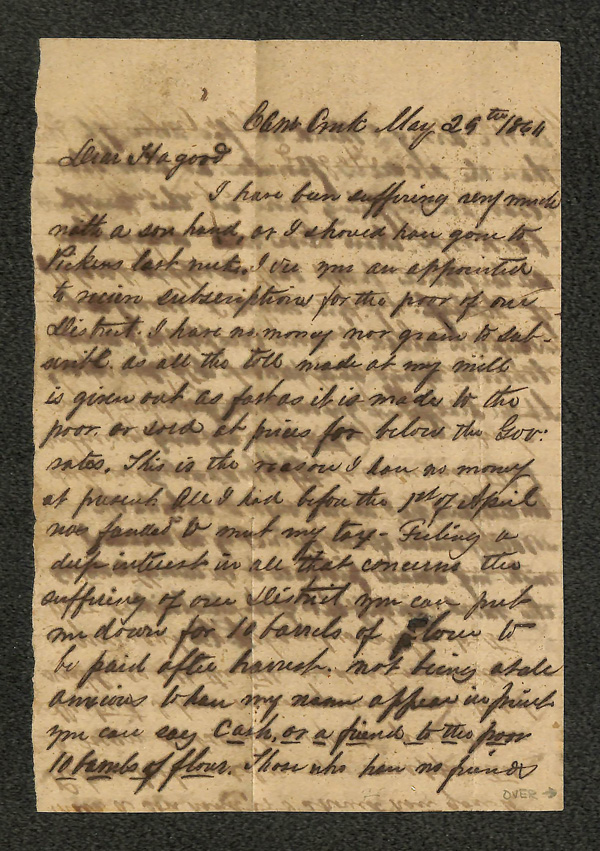 Cane Creek May 25th/1864
Dear Hagood
I have been suffering very much
with a sore hand, or I should have gone to
Pickens last week. I see you are appointed
to receive subscriptions for the poor of our
District. I have no money nor grain to sub-
scribe as all the toll made at my mill
is given out as fast as it is made to the
poor, or sold at prices far below the Gov:
rates. This is the reason I have no money
at present. All I had before the 1st of April
was funded to meet my tax - Feeling a
deep interest in all that concerns the
suffering of our District you can put
me down for 10 barrels of Flour to
be paid after harvest. Not being at all
anxious to have my name appear in print
you can say Cash, or a friend to the poor
10 barrels of flour. Those who have no friends
OVER →